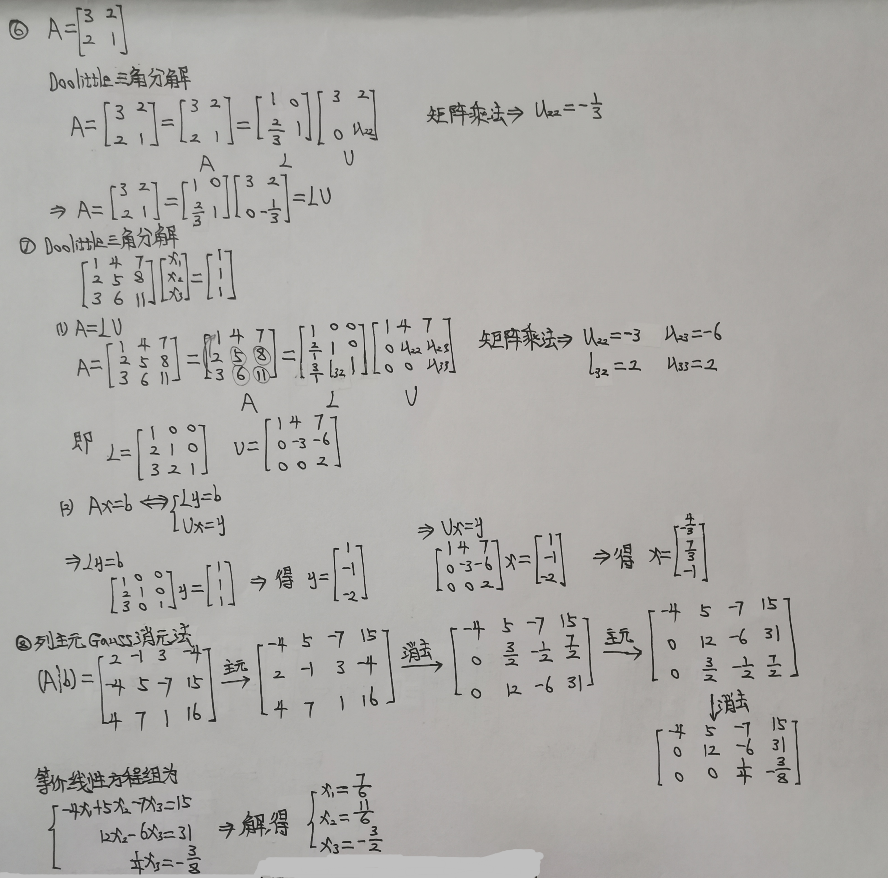 ⑥ A=[3 2; 2 1]
Doolittle三角分解
A=[3 2; 2 1]=[3 2; 2 1]=[1 0; 2/3 1][3 2; 0 u₂₂] 矩阵乘法⇒ u₂₂=-1/3
A L U
⇒ A=[3 2; 2 1]=[1 0; 2/3 1][3 2; 0 -1/3]=LU
⑦ Doolittle三角分解
[1 4 7; 2 5 8; 3 6 11][x₁; x₂; x₃]=[1; 1; 1]
(1) A=LU
A=[1 4 7; 2 5 8; 3 6 11]=[1 4 7; 2 ⑤ ⑧; 3 ⑥ ⑪]=[1 0 0; 2/1 1 0; 3/1 l₃₂ 1][1 4 7; 0 u₂₂ u₂₃; 0 0 u₃₃] 矩阵乘法⇒ u₂₂=-3 u₂₃=-6
l₃₂=2 u₃₃=2
A L U
即 L=[1 0 0; 2 1 0; 3 2 1] U=[1 4 7; 0 -3 -6; 0 0 2]
(2) Ax=b ⇔ {Ly=b
Ux=y
⇒Ly=b
[1 0 0; 2 1 0; 3 0 1]y=[1; 1; 1] ⇒ 得 y=[1; -1; -2]
⇒ Ux=y
[1 4 7; 0 -3 -6; 0 0 2]x=[1; -1; -2] ⇒得 x=[-4/3; 7/3; -1]
⑧列主元Gauss消元法
(A|b)=[2 -1 3 -4; -4 5 -7 15; 4 7 1 16] 主元→ [-4 5 -7 15; 2 -1 3 -4; 4 7 1 16] 消去→ [-4 5 -7 15; 0 3/2 -1/2 7/2; 0 12 -6 31] 主元→ [-4 5 -7 15; 0 12 -6 31; 0 3/2 -1/2 7/2]
↓消去
[-4 5 -7 15; 0 12 -6 31; 0 0 1/4 -3/8]
等价线性方程组为
{-4x₁+5x₂-7x₃=15
12x₂-6x₃=31
1/4x₃=-3/8
⇒解得 {x₁=7/6
x₂=11/6
x₃=-3/2